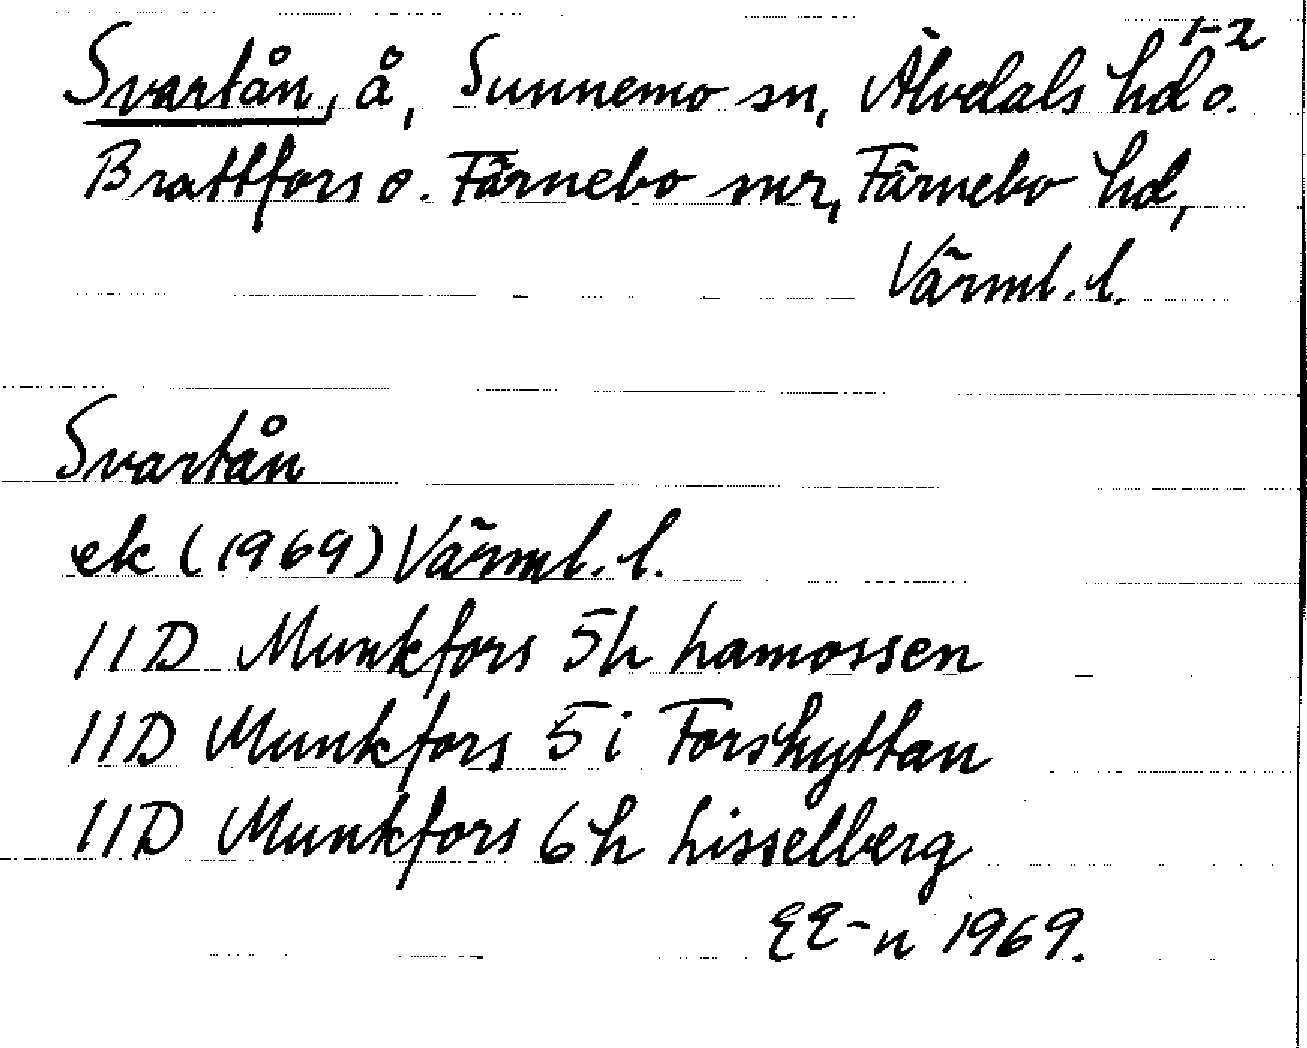 1-2
Svartån, å, Sunnemo sn, Älvdals hd o.
Brattfors o. Färnebo snr, Färnebo hd,
Värml. l.
Svartån
ek (1969) Värml. l.
11D Munkfors 5h Lamossen
11D Munkfors 5i Forshyttan
11D Munkfors 6h Lisselberg
EE-n 1969.